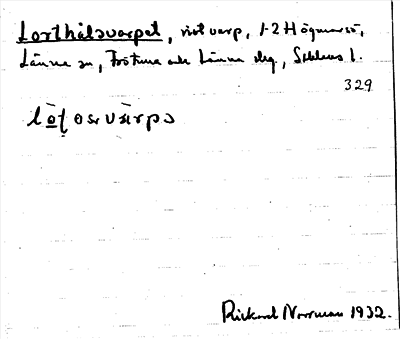 Lorthålsvarpet, notvarp, 1-2 H Högmarsö,
Länna sn, Frötuna och Länna skg., Sthlms l.
329
Rickard Norrman 1932.